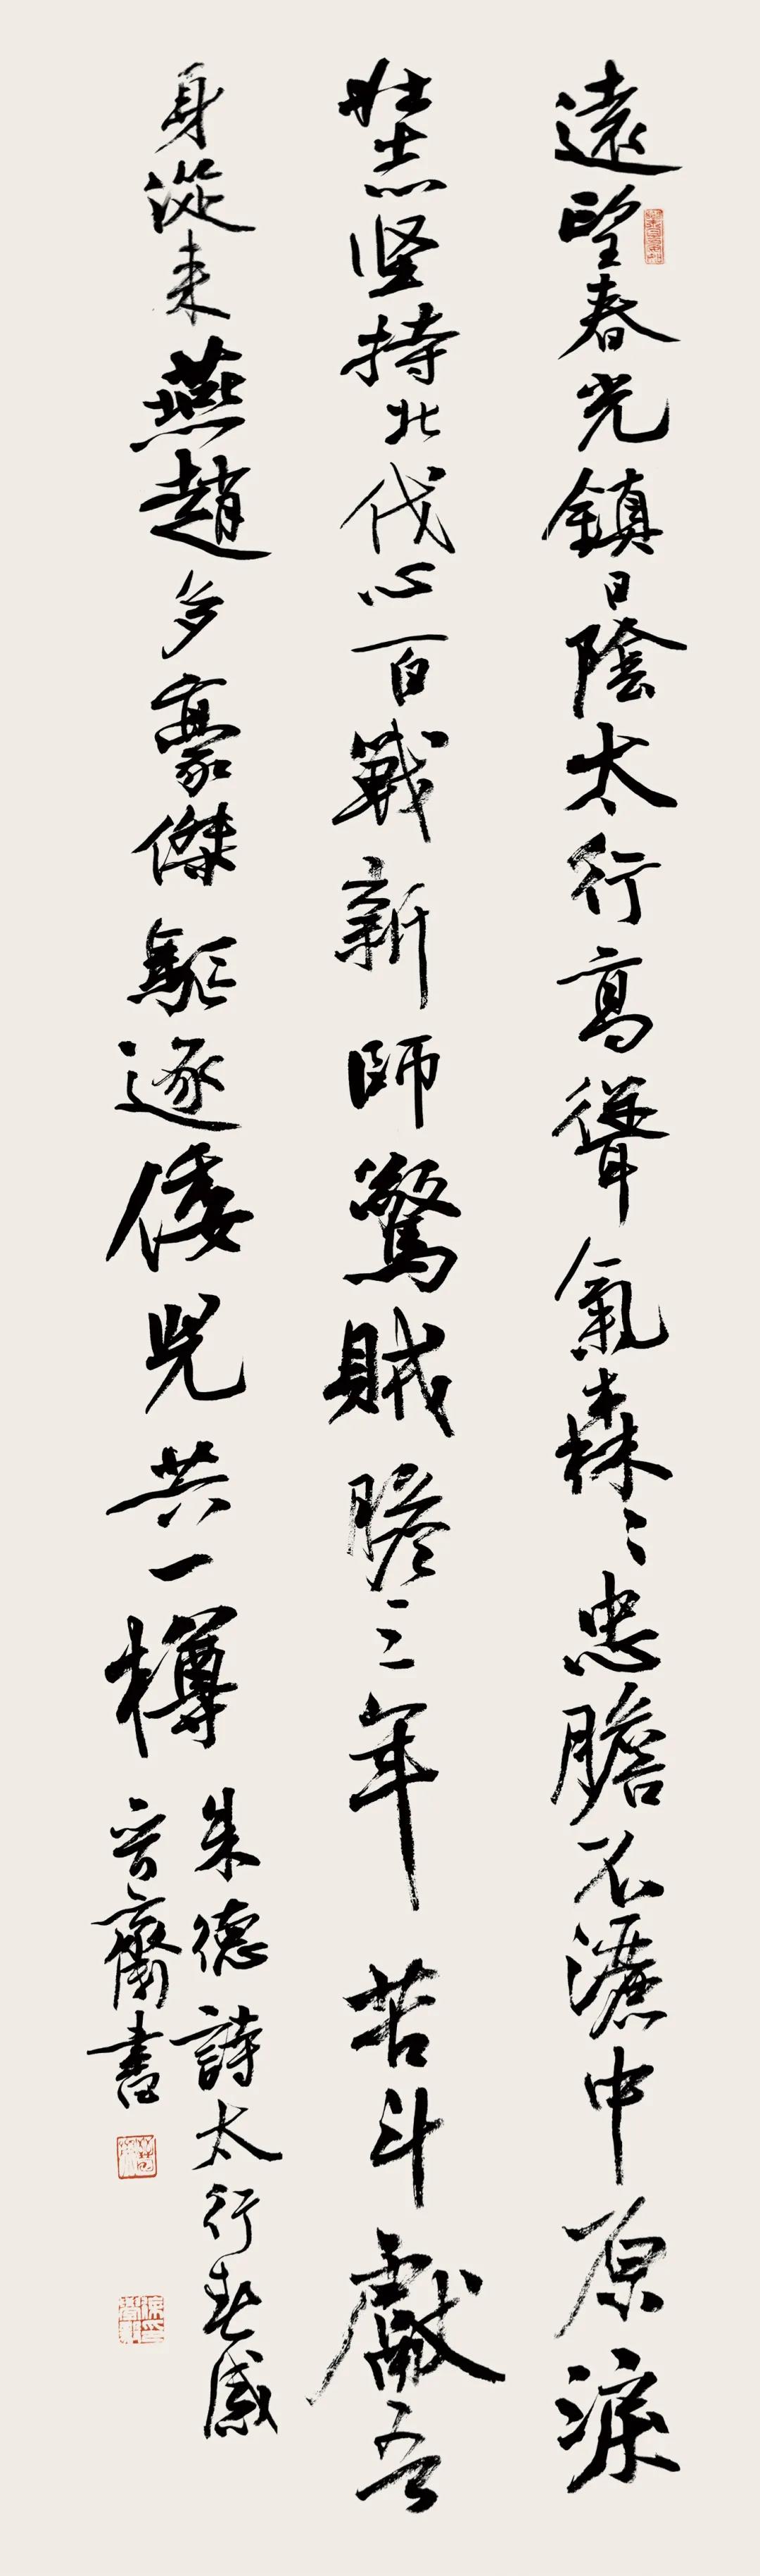 遠望春光鎮日陰太行高聳氣森〻忠膽不灑中原淚
壯志堅持北伐心百戰新師驚賊膽三年苦斗獻吾
身從来燕趙多豪傑驅逐倭兒共一樽
朱德詩太行春感
齋書